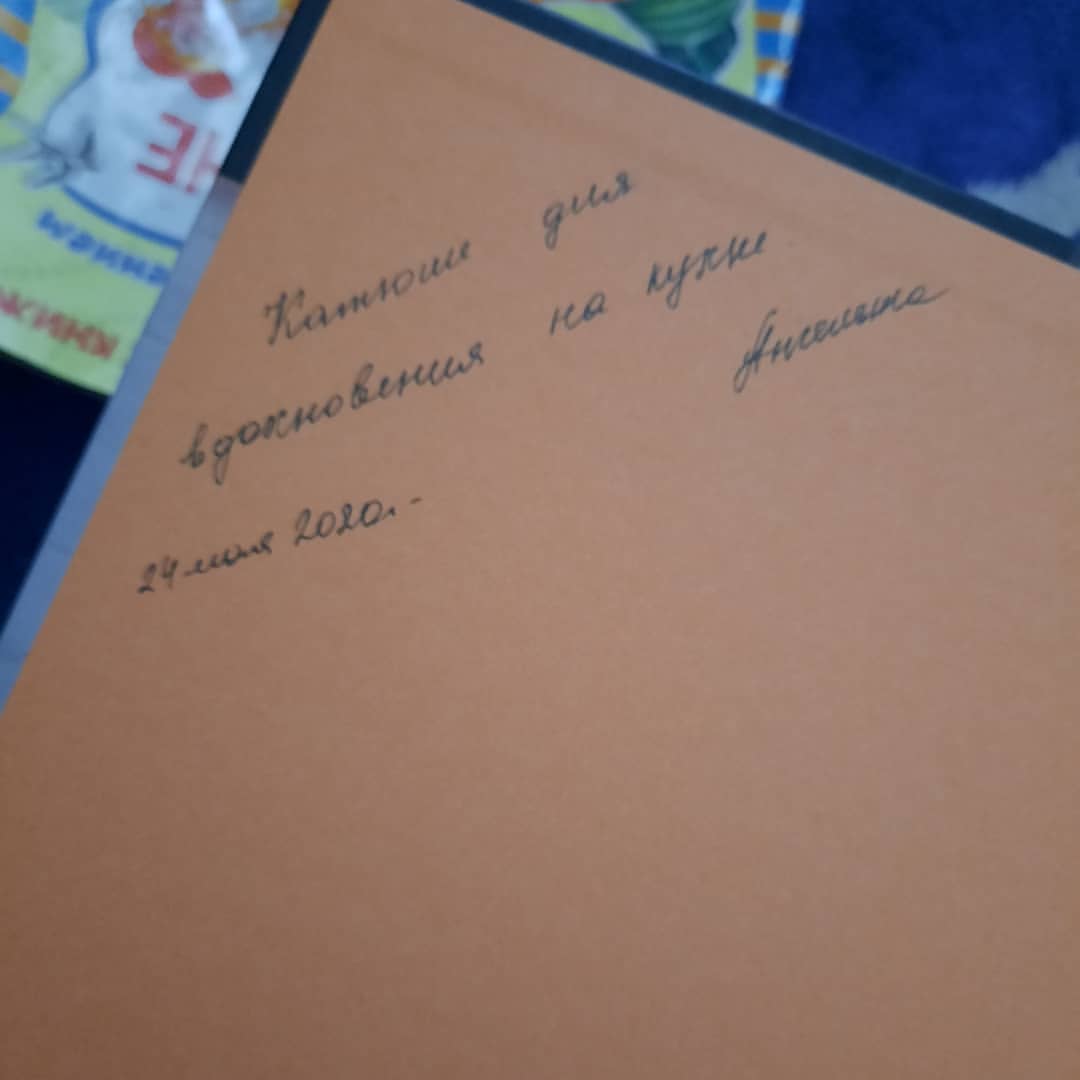 Катюше для
вдохновения на кухне
Ангелина
24 мая 2020г.-
НЕ